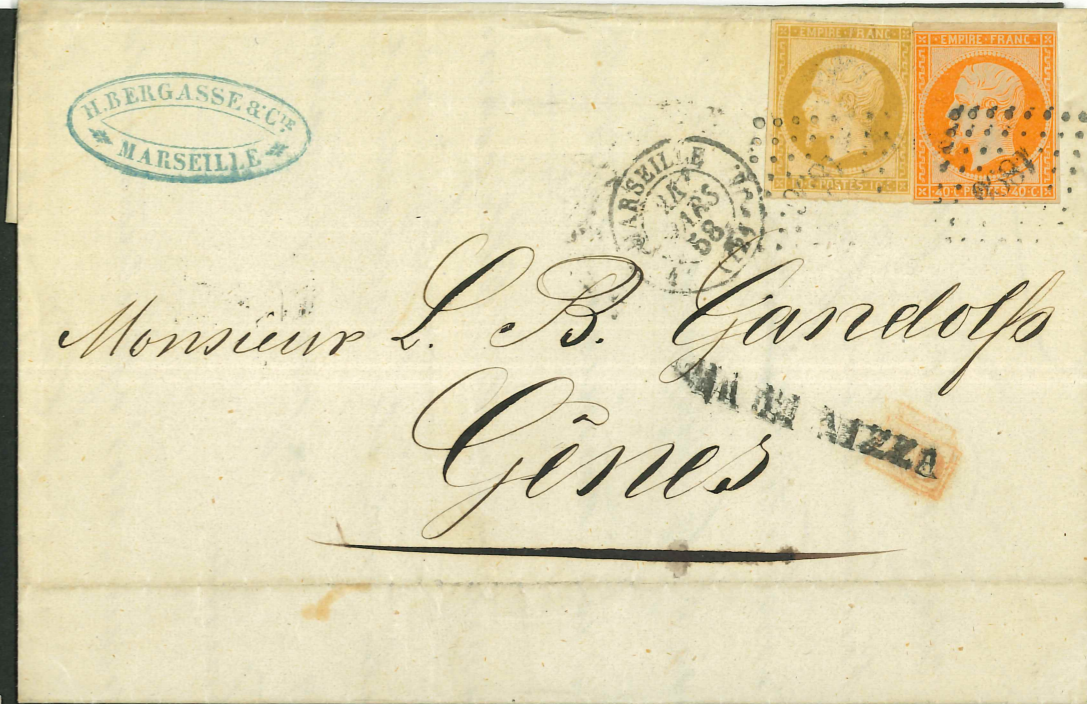 H. BERGASSE & Cie
MARSEILLE
EMPIRE FRANC
POSTES
EMPIRE FRANC
40 C POSTES 40 C
MARSEILLE
MARS
58
(12)
Monsieur L. B. Gandolfo
VIA DI NIZZA
Gênes